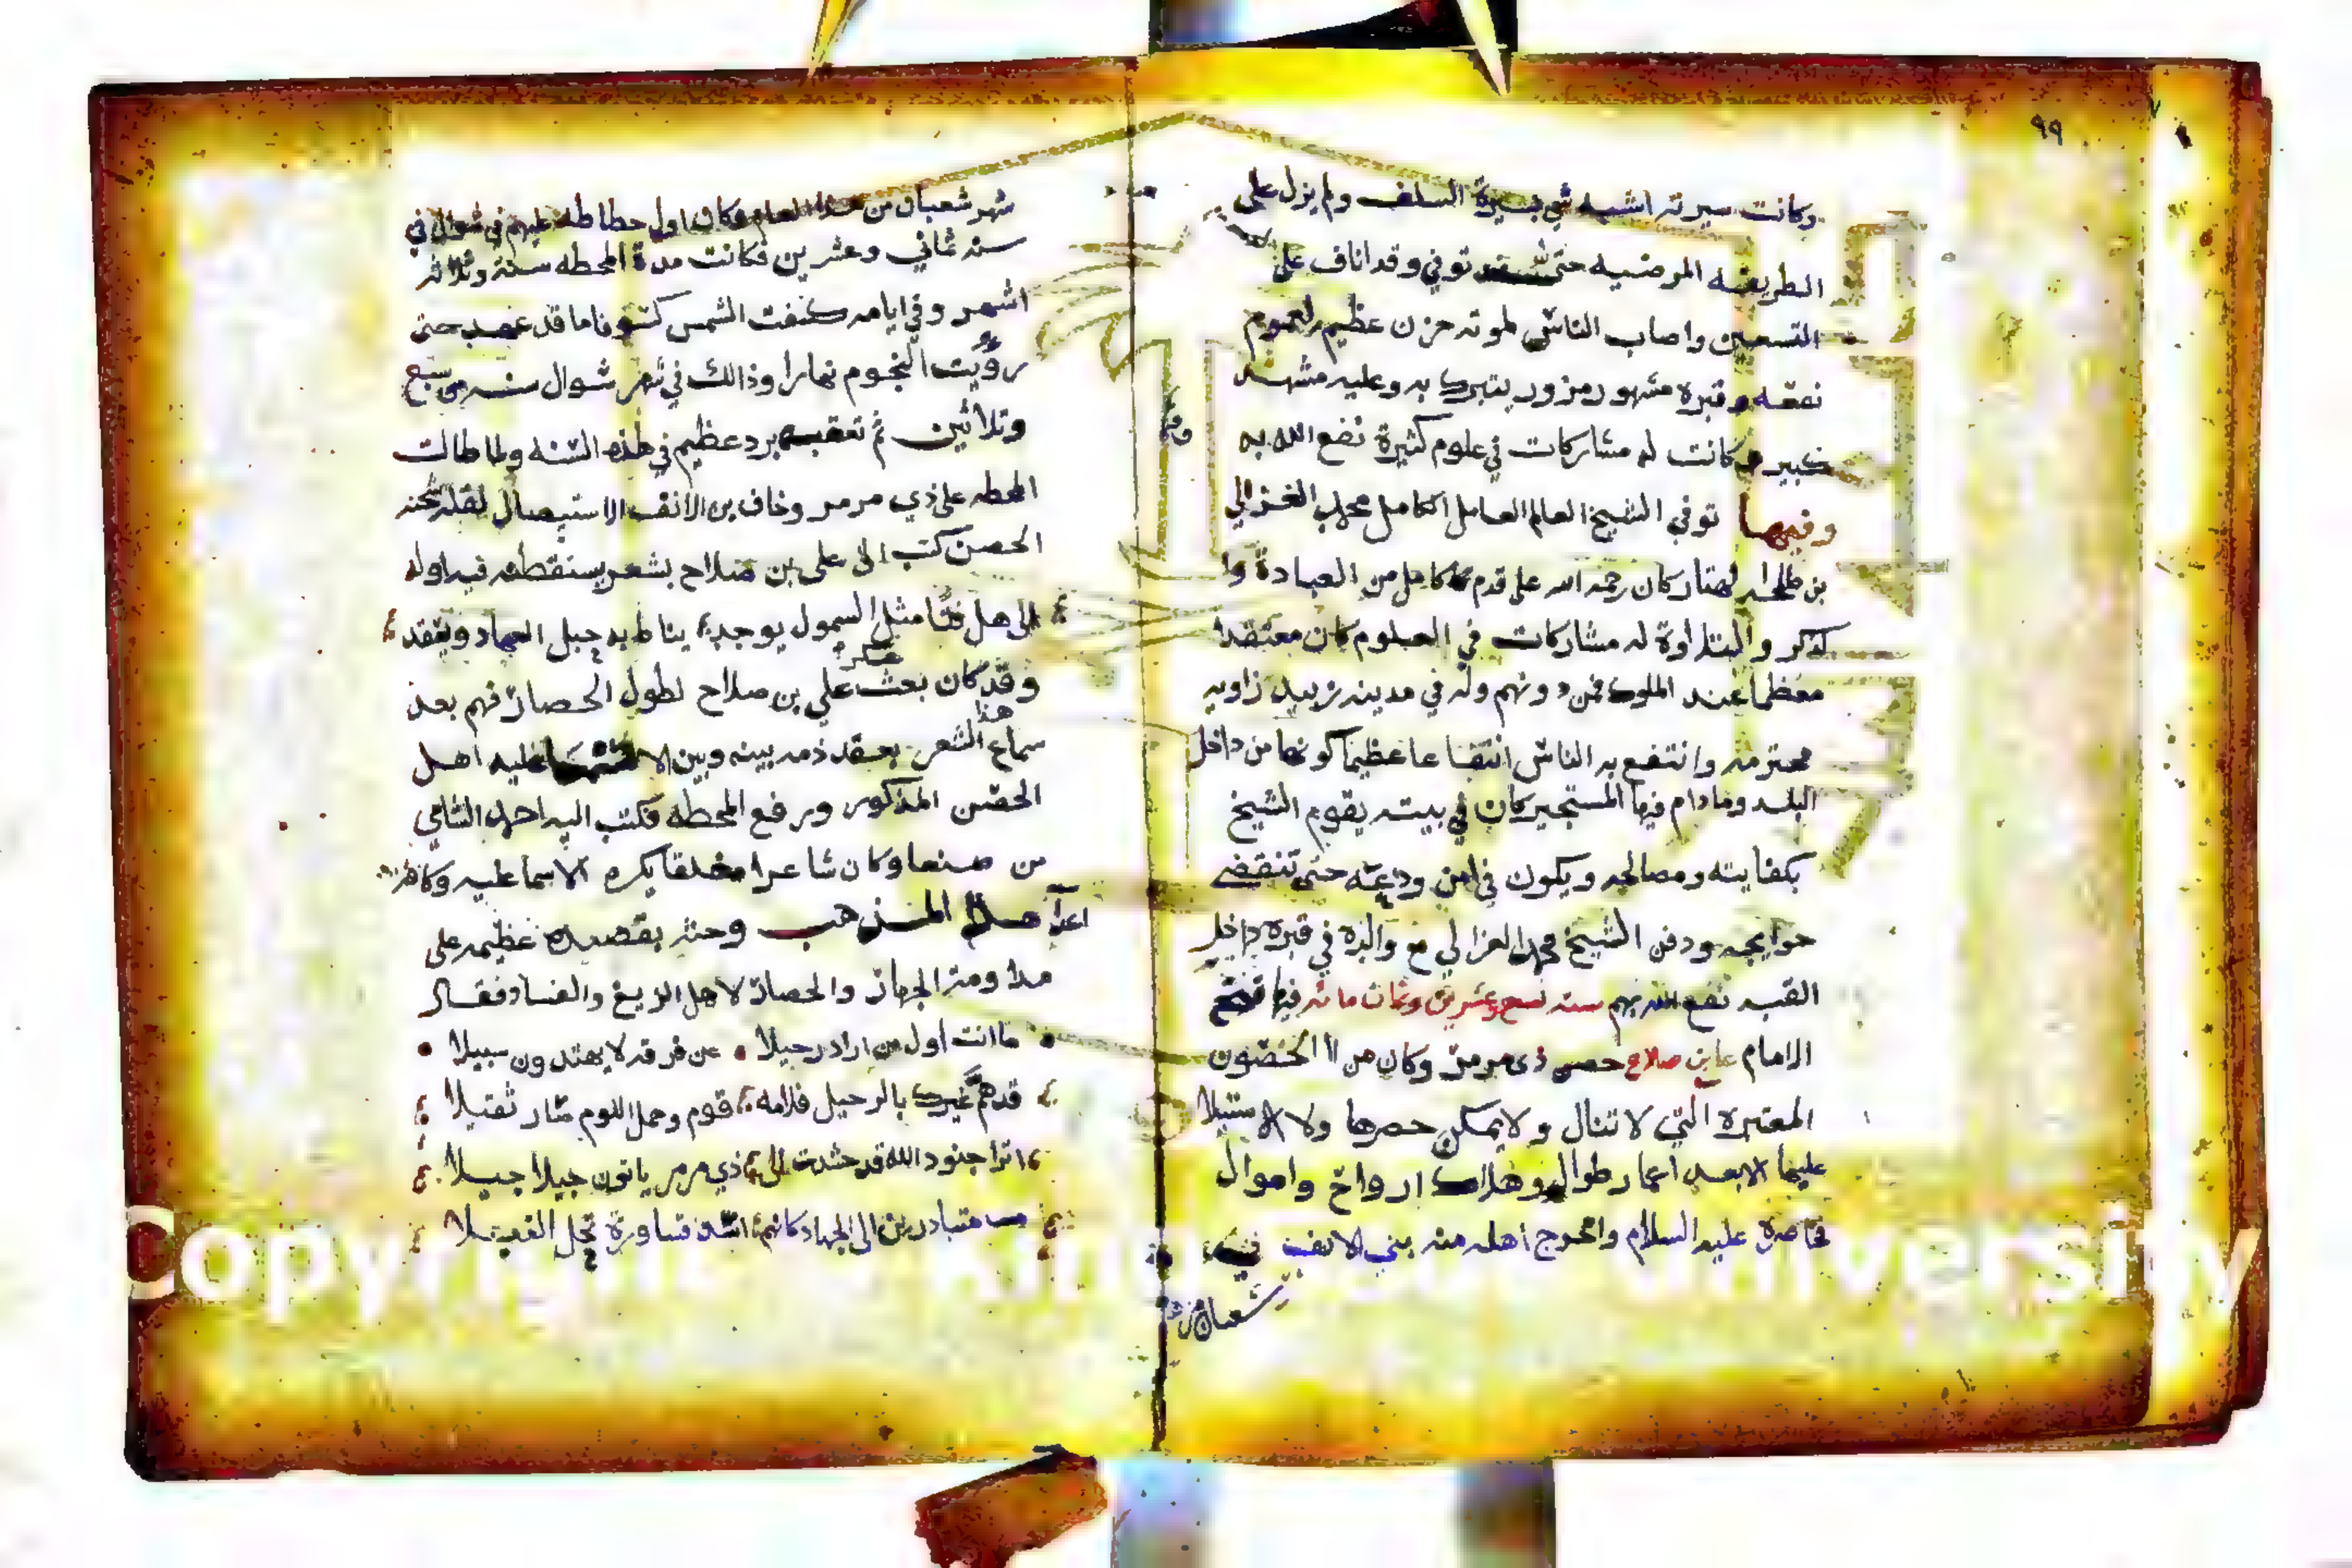 ٩٩
وكانت سيرته اشبه شي بسيرة السلف ولم يزل على
الطريقه المرضيه حتى توفي وقد اناف على
التسعين واصاب الناس لموته حزن عظيم لعموم
نفعه وقبره مشهور مزور يتبرك به وعليه مشهد
كبير وكانت له مشاركات في علوم كثيرة نفع الله به
وفيها توفي الشيخ العالم العامل الكامل محمد الغزالي
بن كان رحمه الله على قدم كامل من العبادة وا
لذكر والتلاوة له مشاركات في العلوم كان معتقدا
معظما عند الملوك فمن دونهم وله في مدينه زبيد زاويه
محترمه وانتفع به الناس انتفاعا عظيما كونها من داخل
البلد ومادام فيها المستجير كان في بيته يقوم الشيخ
بكفايته ومصالحه ويكون في امن ودعة حتى تنقضي
حوايجه ودفن الشيخ محمد الغزالي مع والده في قبره داخل
القبه نفع الله بهم سنه تسع وعشرين وثمان مائه فيها فتح
الامام علي بن صلاح حصن ذي مرمر وكان من الحصون
المعتبره التي لا تنال ولا يمكن حصرها ولا الاستيلا
عليها الا بعد اعمار طوال وهلاك ارواح واموال
فحاصره عليه السلام واخرج اهله منه بني الانف في
شعبان من
شهر شعبان من هذا العام وكان اول حطاطه عليهم في شوال في
سنه ثماني وعشرين فكانت مدة المحطه سنة وثلاثه
اشهر وفي ايامه كسفت الشمس كسوفا ما قد عهد حتى
رؤيت النجوم نهارا وذالك في شهر شوال سنه سبع
وثلاثين ثم تعقبه برد عظيم في هذه السنه ولما طالت
المحطه على ذي مرمر وخاف بن الانف الاستيصال لقلة شحنه
الحصن كتب الى علي بن صلاح بشعر يستعطفه فيه اوله
الى هل فتًا مثل السمول يوجد يناط به حبل العهاد ويعقد
وقد كان بعث عسكر علي بن صلاح لطول الحصار فهم بعد
سماع هذا الشعر بعقد ذمه بينه وبين عليه اهل
الحصن المذكور ورفع المحطه فكتب اليه احمد الشامي
من صنعا وكان شاعرا مفلقا يكره الاسماعليه وكافة
اعدآ هذا المذهب وحثه بقصيده عظيمه على
مداومة الجهاد والحصار لاهل الزيغ والفساد فقال
ما انت اول من اراد رحيلا • عن فرقه لا يهتدون سبيلا •
قد هَمَّ غيرك بالرحيل فلامه قوم وحمل اللوم صار ثقيلا
اترا جنود الله قد حشدت الى ذي مرمر ياتون جيلا جيلا
متبادرين الى الجهاد كانهم اسد قساورة تحل الغيلا
Copyright © King Saud University